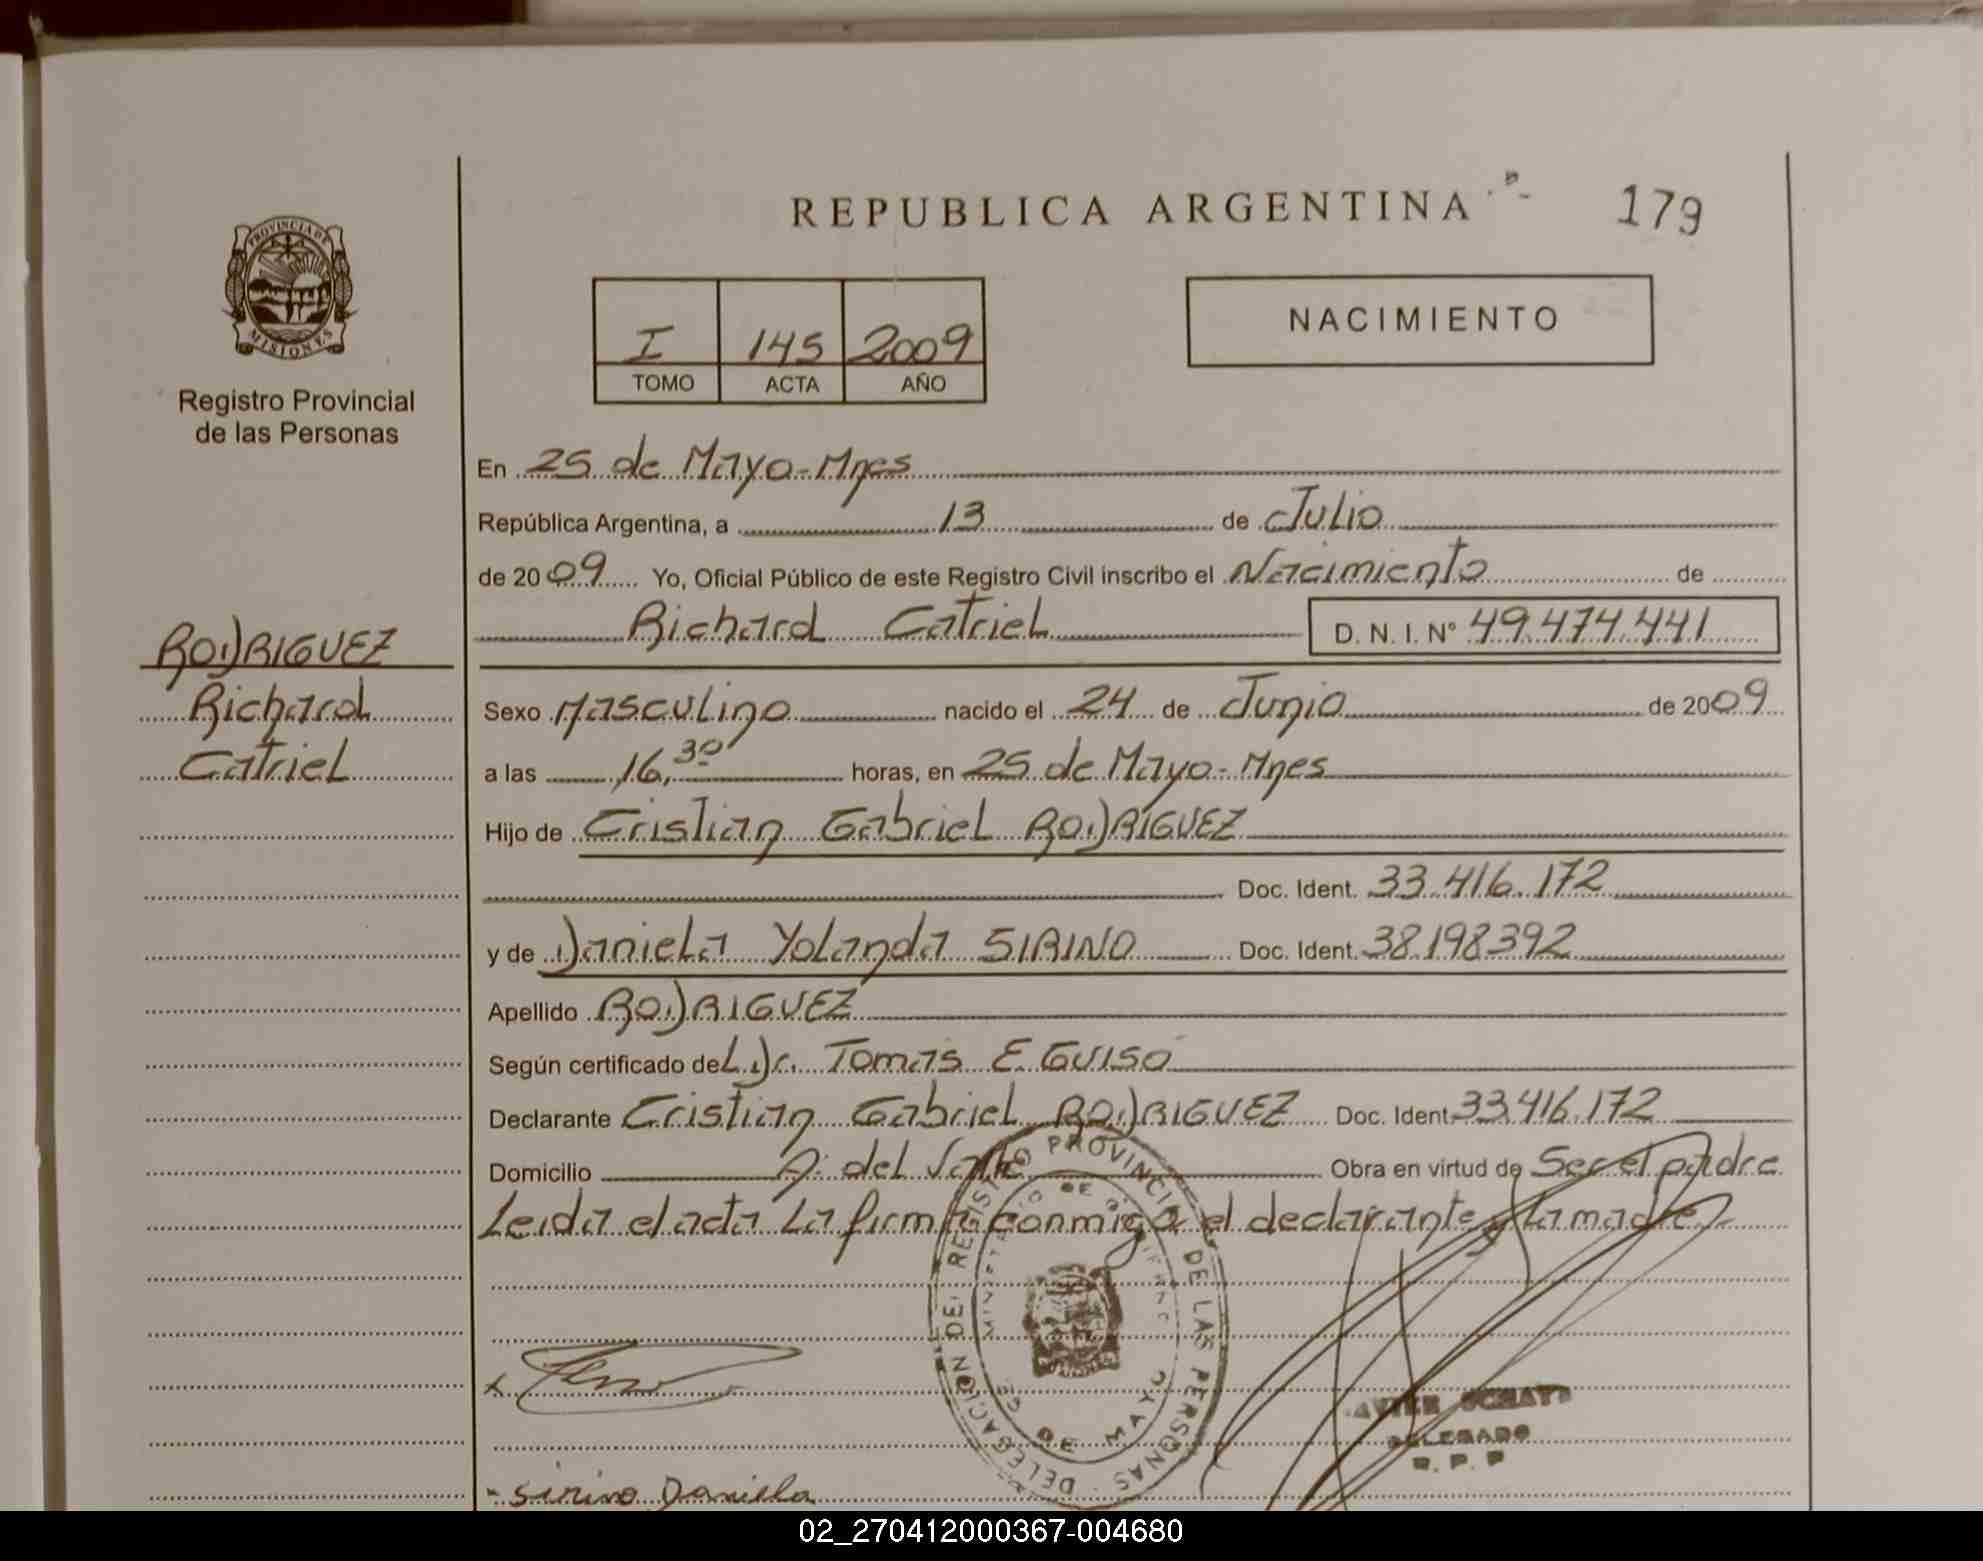 REPUBLICA ARGENTINA
179
PROVINCIA DE
MISIONES
Registro Provincial
de las Personas
I 145 2009
TOMO ACTA AÑO
NACIMIENTO
En 25 de Mayo-Mnes
República Argentina, a 13 de Julio
de 2009 Yo, Oficial Público de este Registro Civil inscribo el Nacimiento de
Richard Catriel D. N. I. Nº 49.474.441
RODRIGUEZ
Richard
Catriel
Sexo Masculino nacido el 24 de Junio de 2009
a las 16,30 horas, en 25 de Mayo-Mnes
Hijo de Cristian Gabriel RODRIGUEZ
Doc. Ident. 33.416.172
y de Daniela Yolanda SIRINO Doc. Ident. 38.198.392
Apellido RODRIGUEZ
Según certificado del Dr. Tomas E. GUISO
Declarante Cristian Gabriel RODRIGUEZ Doc. Ident. 33.416.172
Domicilio A. del Valle Obra en virtud de Ser el padre
Leida el acta La firma conmigo el declarante y la madre
DELEGACION DE REGISTRO PROVINCIAL DE LAS PERSONAS
25 DE MAYO
DELEGADO
R. P. P
Sirino Daniela
02_270412000367-004680